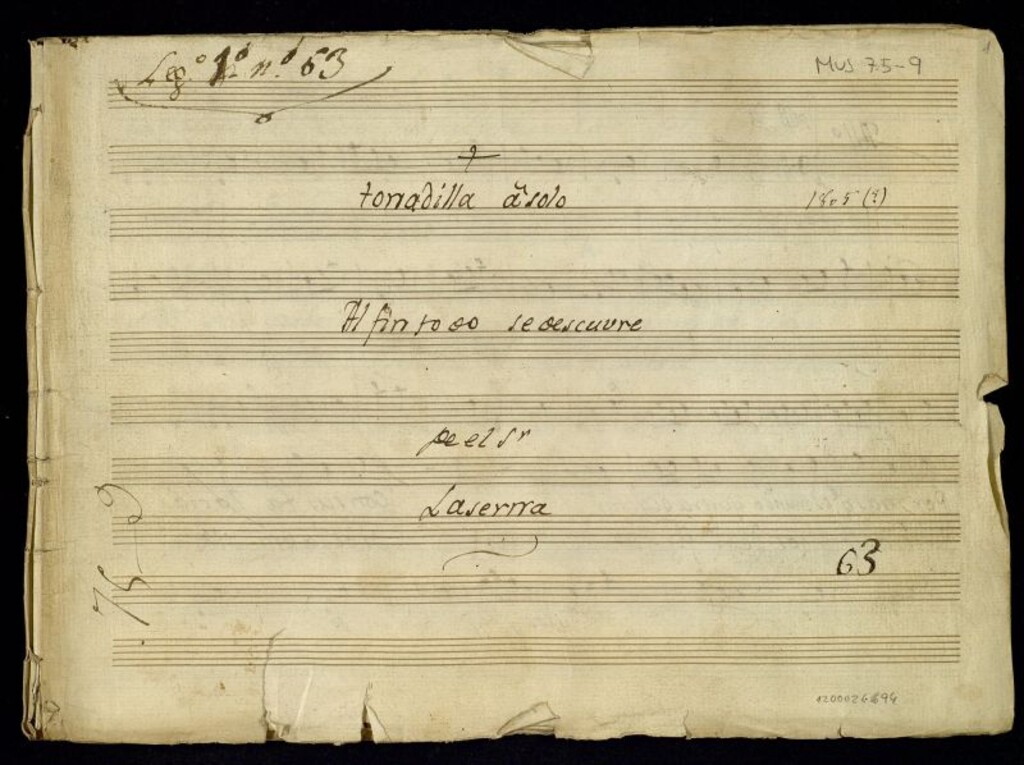 Leg.º 1º n.º 63
MUS 75-9
1
tonadilla â solo
1805 (?)
Al fin todo se descuvre
de el Sr
Laserna
75-9
63
1200026694